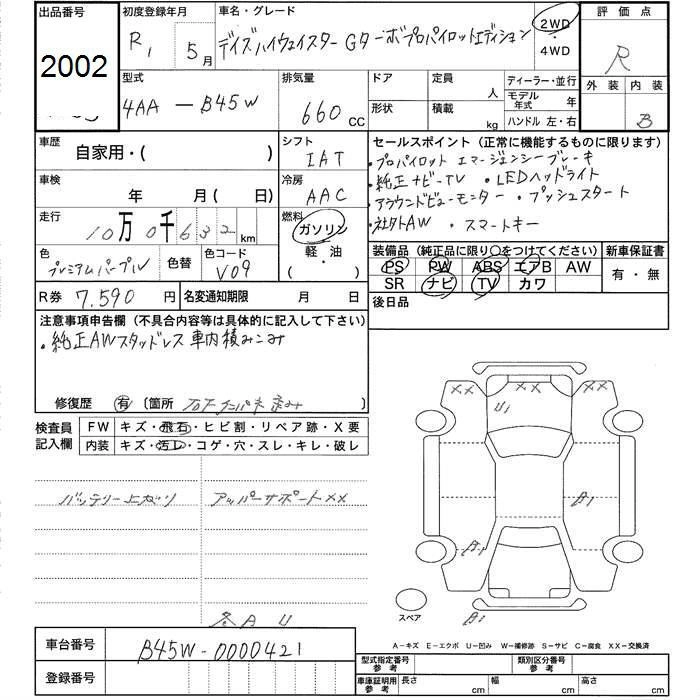 出品番号
2002
初度登録年月
R1 5月
車名・グレード
デイズハイウェイスターGターボプロパイロットエディション
2WD
4WD
評価点
R
外装 内装
B
型式
4AA-B45W
排気量
660 CC
ドア
形状
定員
人
積載
kg
ディーラー・並行
モデル年式 年
ハンドル 左・右
車歴
自家用・( )
シフト
IAT
車検
年 月( 日)
冷房
AAC
走行
10万0千632 km
燃料
ガソリン
軽・油
・( )
色
プレミアムパープル
色替
色コード
V09
R券 7,590 円
名変通知期限 月 日
セールスポイント(正常に機能するものに限ります)
・プロパイロット エマージェンシーブレーキ
・純正ナビ-TV ・LEDヘッドライト
・アラウンドビューモニター ・プッシュスタート
・社外AW ・スマートキー
装備品(純正品に限り○をつけてください)
新車保証書
PS PW ABS エアB AW
SR ナビ TV カワ
有・無
後日品
注意事項申告欄(不具合内容等は具体的に記入して下さい)
・純正AWスタッドレス車内積みこみ
修復歴 有 〔箇所
検査員記入欄
FW キズ・飛石・ヒビ割・リペア跡・X要
内装 キズ・汚レ・コゲ・穴・スレ・キレ・破レ
バッテリー上がり
アッパーサポートXX
各A U
XX XX XX
U1
B1
B1
B1
スペア
A-キズ E-エクボ U-凹み W-補修跡 S-サビ C-腐食 XX-交換済
車台番号 B45W-0000421
登録番号
型式指定番号 参考
類別区分番号 参考
車庫証明用 参考
長さ cm
幅 cm
高さ cm